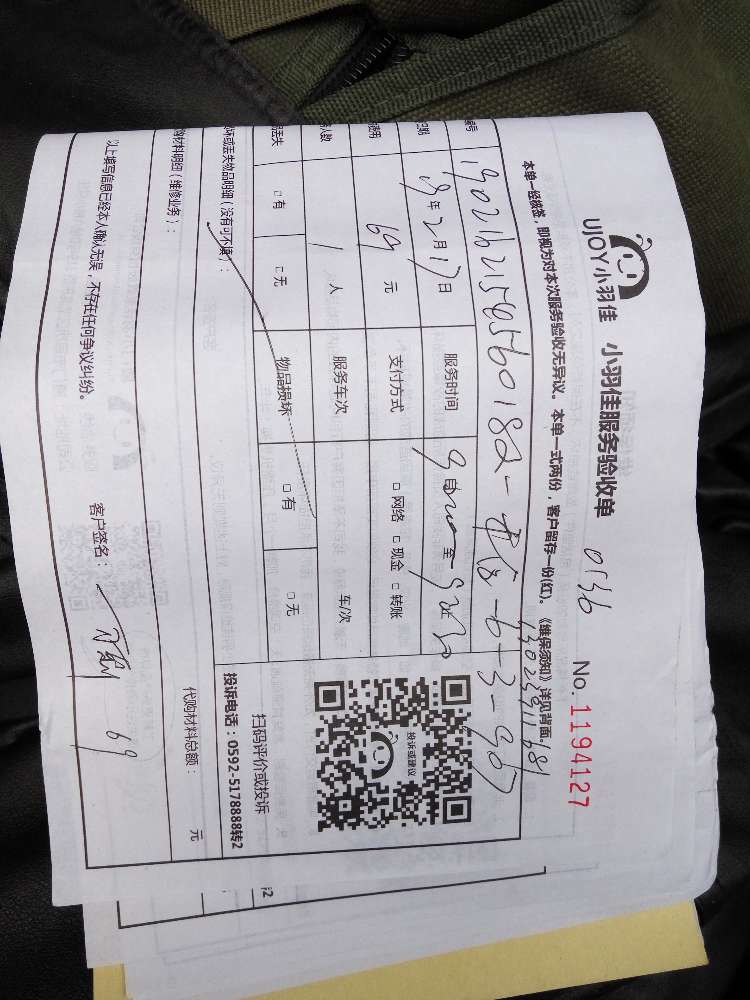 UJOY小羽佳 小羽佳服务验收单 0136 No.1194127
本单一经核签，即视为对本次服务验收无异议。本单一式两份，客户留存一份(红)。《维保须知》详见背面。
编号
19年2月17日 服务时间 9
费用 69 元 支付方式 □网络 □现金 □转账
人数 1 人 服务车次 车/次
丢失 □有 □无 物品损坏 □有 □无
坏或丢失物品明细（没有可不填）：
投诉或建议
扫码评价或投诉
投诉电话：0592-5178888转2
购材料明细（维修业务）： 代购材料总额： 元
以上填写信息已经本人确认无误，不存在任何争议纠纷。 客户签名： 69